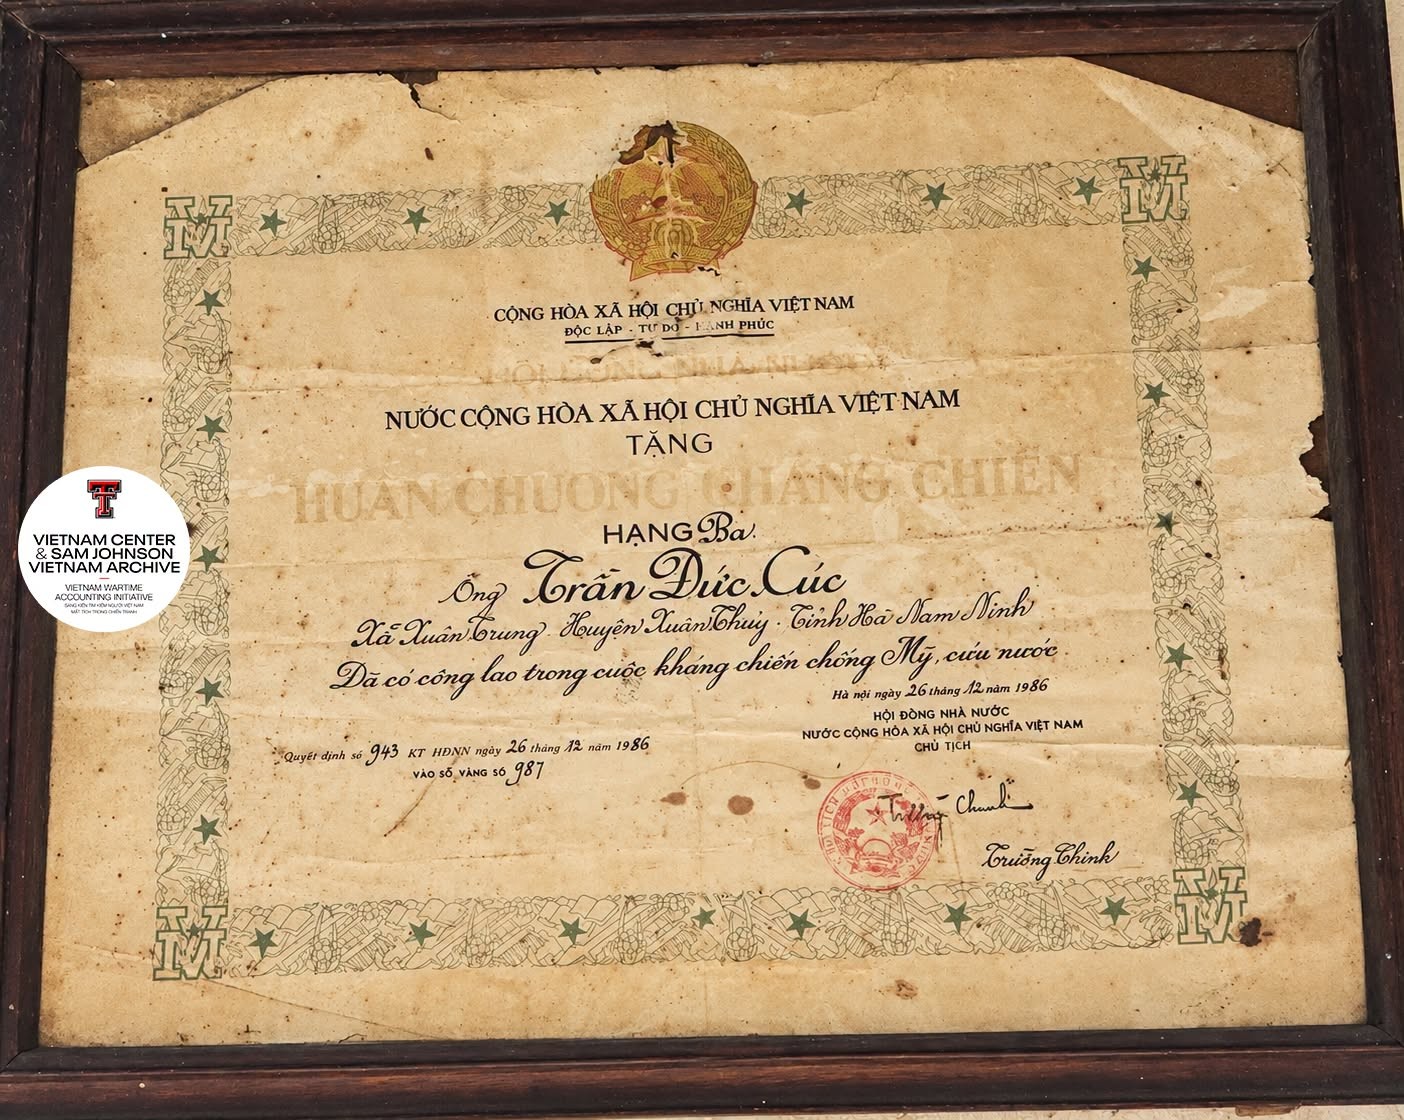 CỘNG HÒA XÃ HỘI CHỦ NGHĨA VIỆT NAM
ĐỘC LẬP - TỰ DO - HẠNH PHÚC
HỘI ĐỒNG NHÀ NƯỚC
NƯỚC CỘNG HÒA XÃ HỘI CHỦ NGHĨA VIỆT NAM
TẶNG
HUÂN CHƯƠNG KHÁNG CHIẾN
HẠNG Ba.
Ông Trần Đức Cúc
Xã Xuân Trung - Huyện Xuân Thủy - Tỉnh Hà Nam Ninh
Đã có công lao trong cuộc kháng chiến chống Mỹ, cứu nước
Hà nội ngày 26 tháng 12 năm 1986
HỘI ĐỒNG NHÀ NƯỚC
NƯỚC CỘNG HÒA XÃ HỘI CHỦ NGHĨA VIỆT NAM
CHỦ TỊCH
Quyết định số 943 KT HĐNN ngày 26 tháng 12 năm 1986
VÀO SỔ VÀNG SỐ 987
Trường Chinh
VIETNAM CENTER
& SAM JOHNSON
VIETNAM ARCHIVE
VIETNAM WARTIME
ACCOUNTING INITIATIVE
SÁNG KIẾN TÌM KIẾM NGƯỜI VIỆT NAM
MẤT TÍCH TRONG CHIẾN TRANH